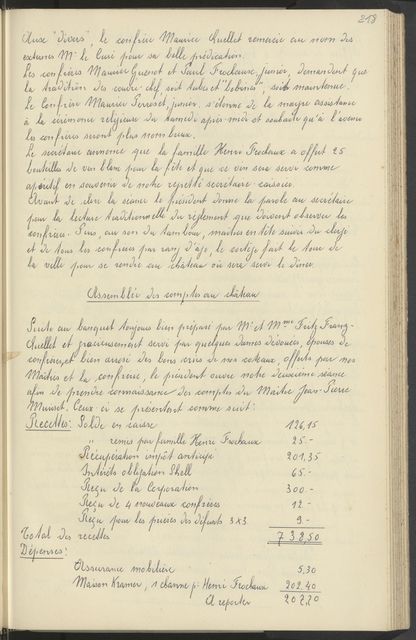 218
Aux "divers", le confrère Maurice Quellet remercie au nom des
externes Mr le Curé pour sa belle prédication.
Les confrères Maurice Guenot et Paul Frochaux, junior, demandent que
la tradition des couvre-chef, soit tubes et "bebcènes", soit maintenue.
Le Confrère Maurice Perroset, junior, s'étonne de la maigre assistance
à la cérémonie religieuse du samedi après-midi et souhaite qu'à l'avenir
les confrères seront plus nombreux.
Le secrétaire annonce que la famille Henri Frochaux a offert 25
bouteilles de vin blanc pour la fête et que ce vin sera servi comme
apéritif en souvenir de notre regretté secrétaire-caissier.
Avant de clore la séance le président donne la parole au secrétaire
pour la lecture traditionnelle du règlement que doivent observer les
confrères. Puis, au son du tambour, maîtres en tête suivis du clergé
et de tous les confrères par rang d'âge, le cortège fait le tour de
la ville pour se rendre au château où sera servi le dîner.
Assemblée des comptes au château
Suite au banquet toujours bien préparé par Mr et Mme Fritz Franz-
Quellet et gracieusement servi par quelques dames dévouées, épouses de
confrères, et bien arrosé des bons crus de nos coteaux, offerts par nos
Maîtres et la confrérie, le président ouvre notre deuxième séance
afin de prendre connaissance des comptes du Maître Jean-Pierre
Muriset. Ceux-ci se présentent comme suit:
Recettes: Solde en caisse 126,15
" remis par famille Henri Frochaux 25.-
Récupération impôt anticipé 201.35
Intérêts obligation Shell 65.-
Reçu de la Corporation 300.-
Reçu de 4 nouveaux confrères 12.-
Reçu pour les prières des défunts 3x3 9.-
Total des recettes 738,50
Dépenses:
Assurance mobilière 5,30
Maison Kramer, 1 channe p. Henri Frochaux 202.40
A reporter 207,70